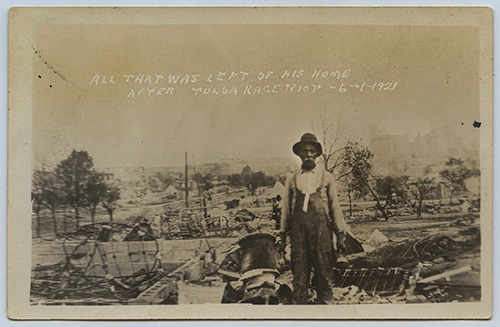 ALL THAT WAS LEFT OF HIS HOME
AFTER TULSA RACE RIOT -6-1-1921